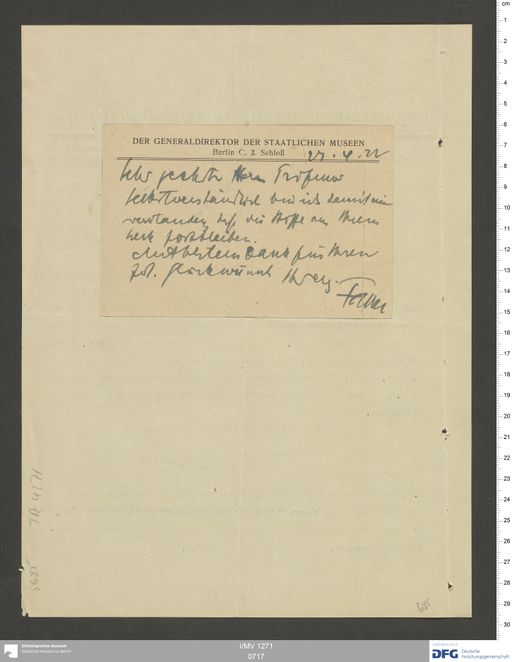 DER GENERALDIREKTOR DER STAATLICHEN MUSEEN
Berlin C. 2. Schloß 27. 4. 22
Sehr geehrter Herr Professor
Selbstverständlich bin ich damit ein
verstanden daß die Stoffe aus Ihrem
Werk fortbleiben.
Mit bestem Dank für Ihren
Glückwunsch Ihr erg.
Falke
685
cm
1
2
3
4
5
6
7
8
9
10
11
12
13
14
15
16
17
18
19
20
21
22
23
24
25
26
27
28
29
30
Ethnologisches Museum
Staatliche Museen zu Berlin
I/MV 1271
0717
DFG Deutsche
Forschungsgemeinschaft